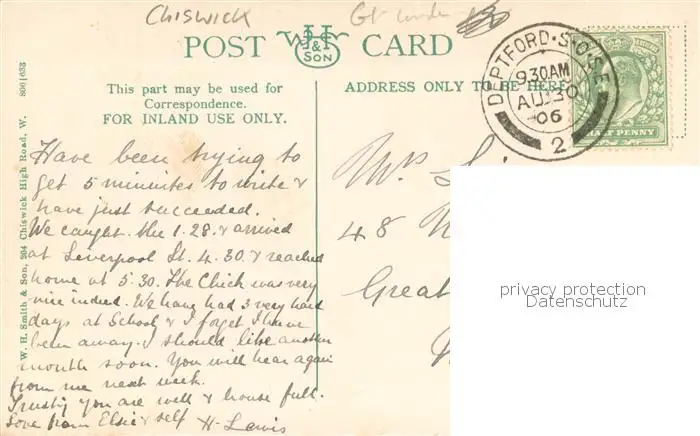 CHISWICK
POST CARD
WHS
& SON
This part may be used for
Correspondence.
FOR INLAND USE ONLY.
ADDRESS ONLY TO BE HERE
DEPTFORD·S.O.S.E
9.30AM
AU 30
06
2
HALF PENNY
806|633
W. H. Smith & Son, 204 Chiswick High Road, W.
Have been trying to
get 5 minutes to write &
have just succeeded.
We caught the 1.28. & arrived
at Liverpool St. 4.30. & reached
home at 5.30. The Chick was very
nice indeed. We have had 3 very hard
days at School & I forget I have
been away. I should like another
month soon. You will hear again
from me next week.
Trusting you are well & house full.
Love from Elsie & self H. Lewis
Mrs
48
Great
privacy protection
Datenschutz